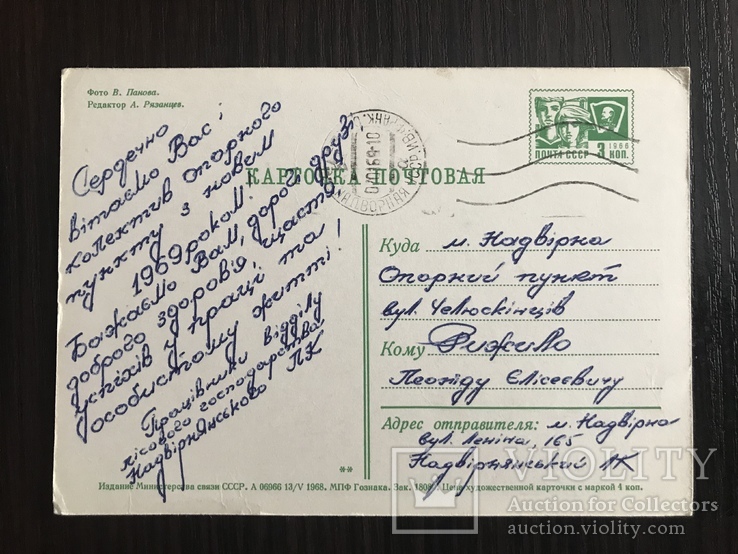 Фото В. Панова.
Редактор А. Рязанцев.
Сердечно
вітаємо Вас і
колектив опорного
пункту з новим
1969 роком!
Бажаємо Вам, дорогі друзі,
доброго здоров'я, щастя,
успіхів у праці та
особистому житті!
Працівники відділу
лісового господарства
Надвірнянського ЛК
1966
ПОЧТА СССР 3 КОП.
НАДВОРНАЯ
КАРТОЧКА ПОЧТОВАЯ
Куда м. Надвірна
Опорний пункт
вул. Челюскінців
Кому Рижило
Леоніду Єлісеєвичу
Адрес отправителя: м. Надвірна
вул. Леніна, 165
Надвірнянський ЛК
**
Издание Министерства связи СССР. А 06966 13/V 1968. МПФ Гознака. Зак. 1808. Цена художественной карточки с маркой 4 коп.
VIOLITY
Auction for Collectors
auction.violity.com